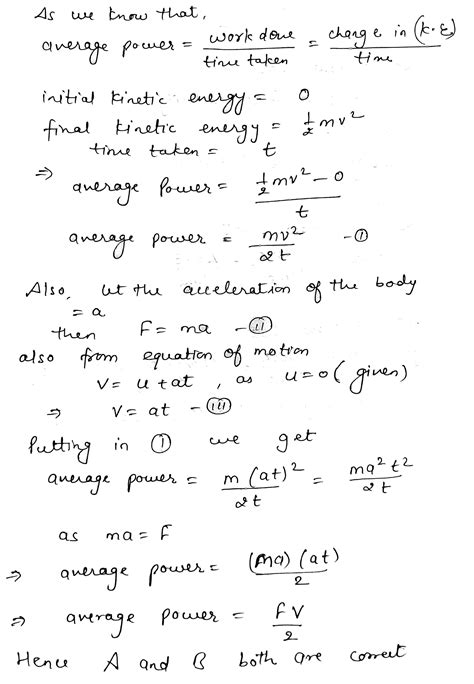 As we know that,
average power = work done / time taken = change in (k.E) / time
initial kinetic energy = 0
final kinetic energy = ½ mv²
time taken = t
⇒ average Power = (½ mv² - 0) / t
average power = mv² / 2t - ①
Also, let the acceleration of the body
= a
then F = ma - ⓘⓘ
also from equation of motion
V = u + at , as u = 0 ( given)
⇒ V = at - ⓘⓘⓘ
Putting in ① we get
average power = m (at)² / 2t = ma² t² / 2t
as ma = F
⇒ average power = (ma) (at) / 2
⇒ average power = FV / 2
Hence A and B both are correct